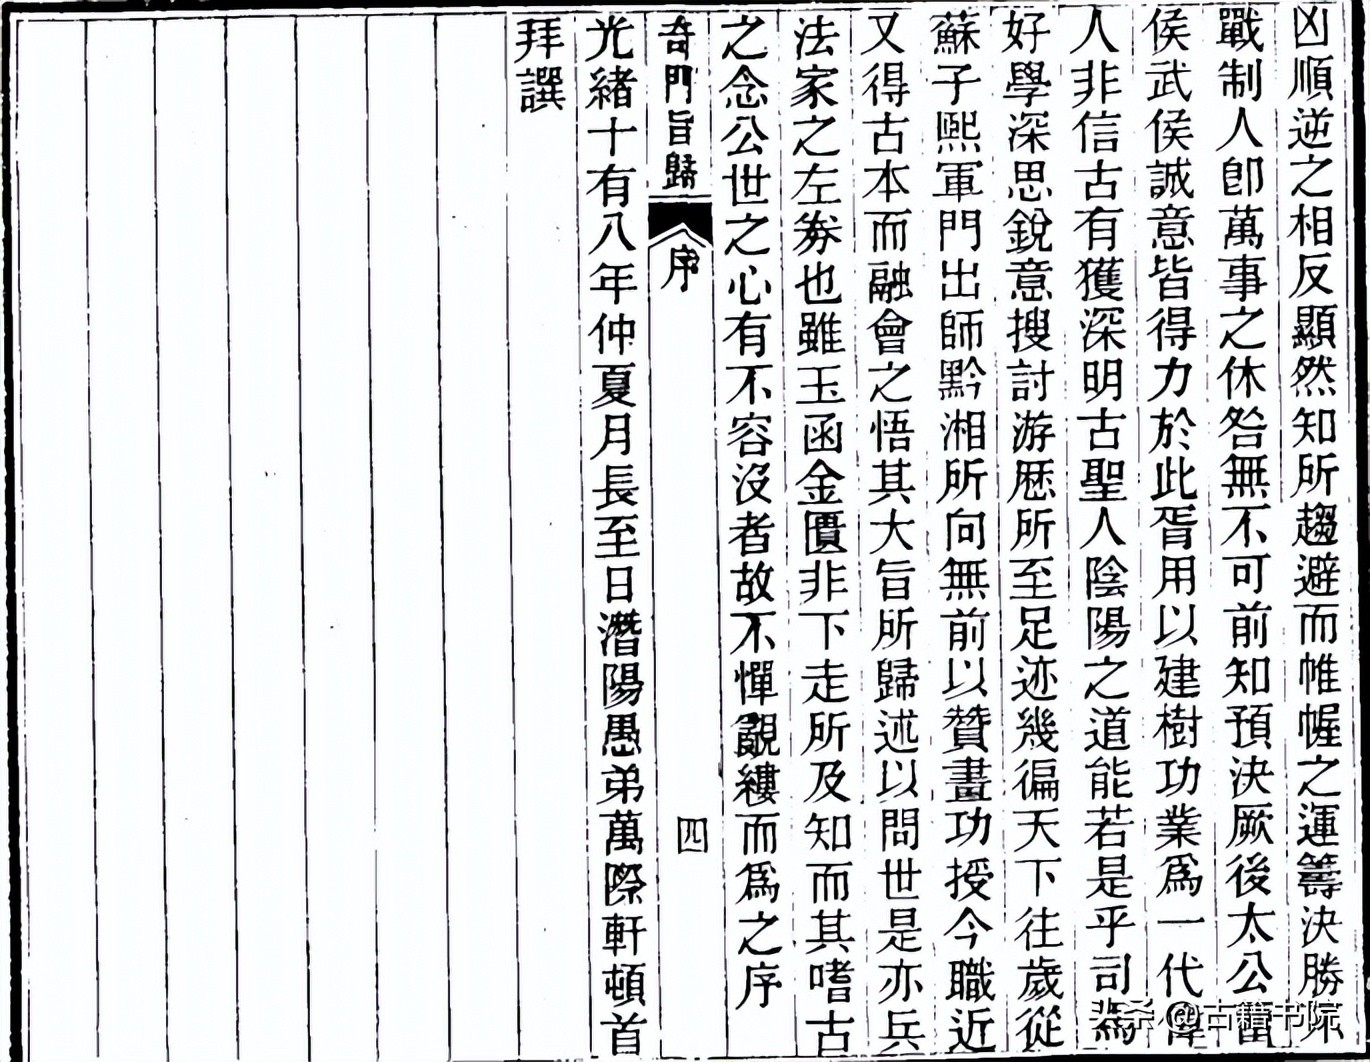 凶順逆之相反顯然知所趨避而帷幄之運籌決勝
戰制人卽萬事之休咎無不可前知預決厥後太公
侯武侯誠意皆得力於此胥用以建樹功業爲一代偉
人非信古有獲深明古聖人陰陽之道能若是乎司馬
好學深思銳意搜討游厯所至足迹幾徧天下往歲從
蘇子熙軍門出師黔湘所向無前以贊畫功授今職近
又得古本而融會之悟其大旨所歸述以問世是亦兵
法家之左劵也雖玉函金匱非下走所及知而其嗜古
之念公世之心有不容沒者故不憚覼縷而爲之序
奇門旨歸 序 四
光緒十有八年仲夏月長至日潛陽愚弟萬際軒頓首
拜譔
@古籍书院